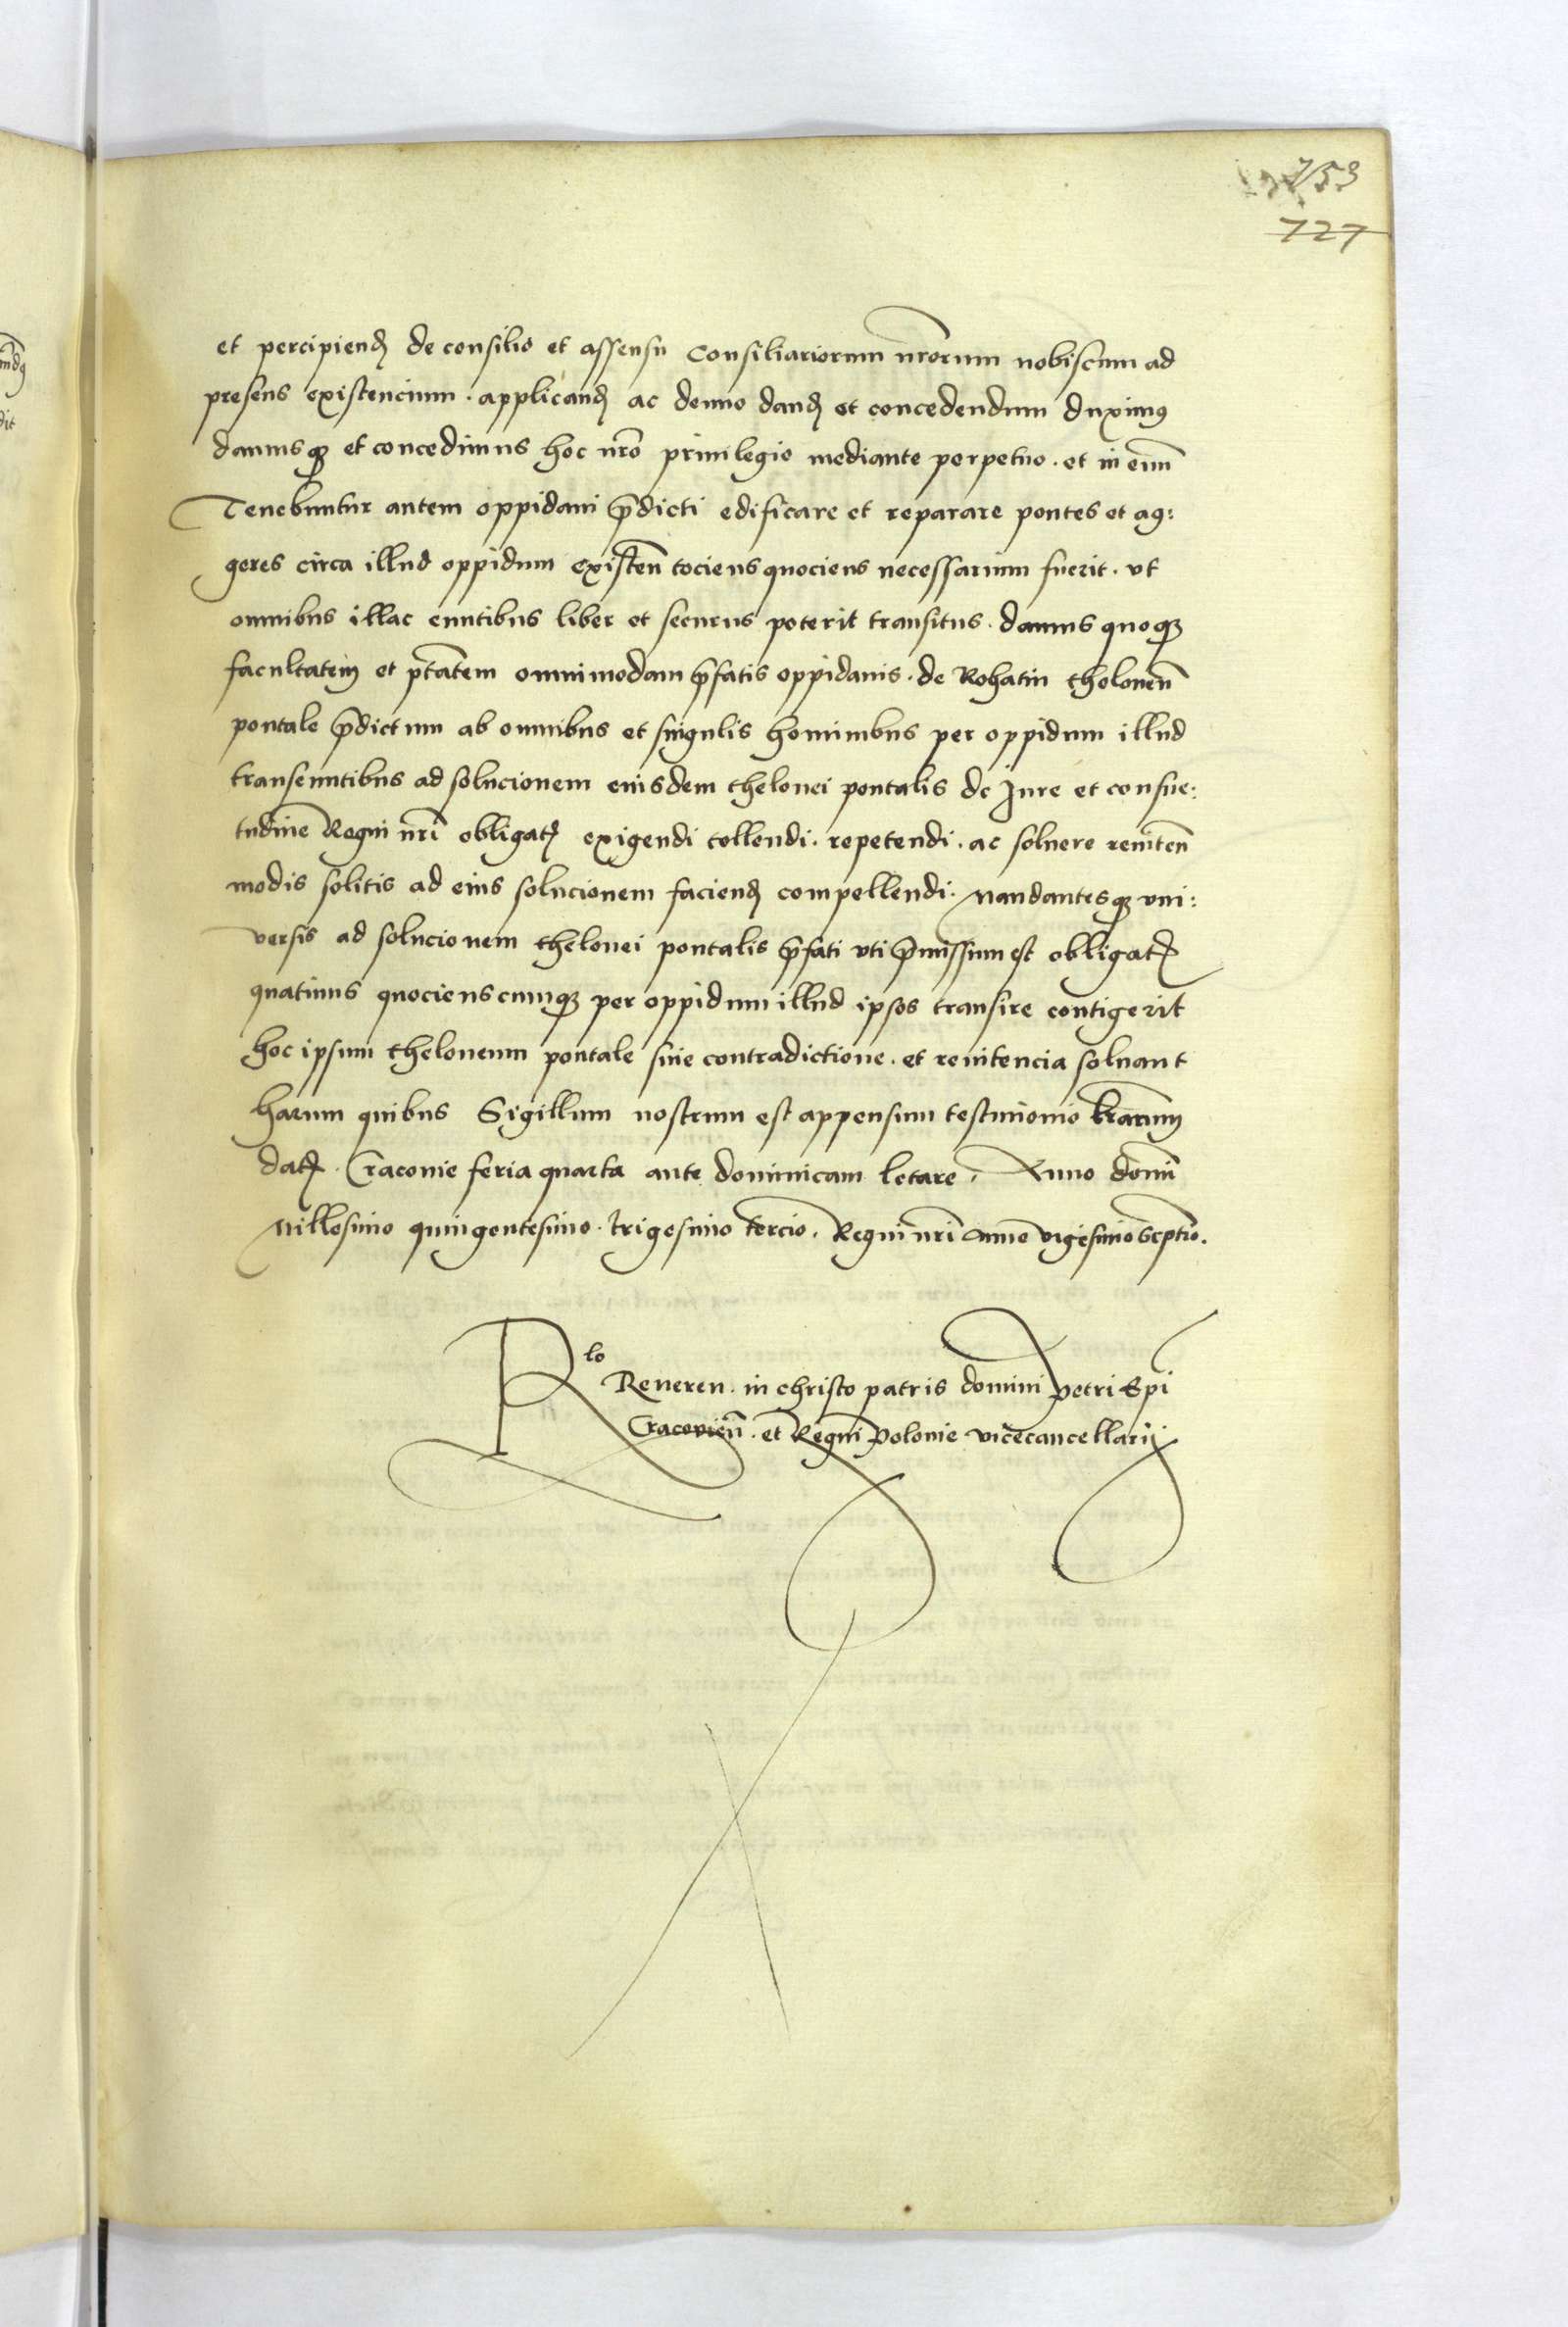 753
727
et percipiend de consilio et assensu Consiliariorum nrorum nobiscum ad
presens existencium . applicand ac denuo dand et concedendum duximus
damusq et concedimus hoc nro privilegio mediante perpetuo . et in eum
Tenebuntur autem oppidani pdicti edificare et reparare pontes et ag:
geres circa illud oppidum existen tociens quociens necessarium fuerit . vt
omnibus illac euntibus liber et securus poterit transitus . damus quoq
facultatem et ptatem omnimodam pfatis oppidanis . de Rohatin theloneu
pontale pdictum ab omnibus et singulis hominibus per oppidum illud
transeuntibus ad solucionem eiusdem thelonei pontalis de Jure et consue:
tudine Regni nri obligat exigendi tollendi . repetendi . ac soluere reniten
modis solitis ad eius solucionem faciend compellendi . Mandantesq vni:
versis ad solucionem thelonei pontalis pfati vti pmissum est obligat
quatinus quocienscumq per oppidum illud ipsos transire contigerit
hoc ipsum theloneum pontale sine contradictione . et renitencia soluant
harum quibus Sigillum nostrum est appensum testimonio lrarum
dat . Cracouie feria quarta ante dominicam letare . Anno domi
Millesimo quingentesimo . trigesimo tercio . Regni nri anno vigesimo septio .
Rlo Reueren . in christo patris domini Petri Epi
Cracouien . et Regni Polonie vicecancellarij